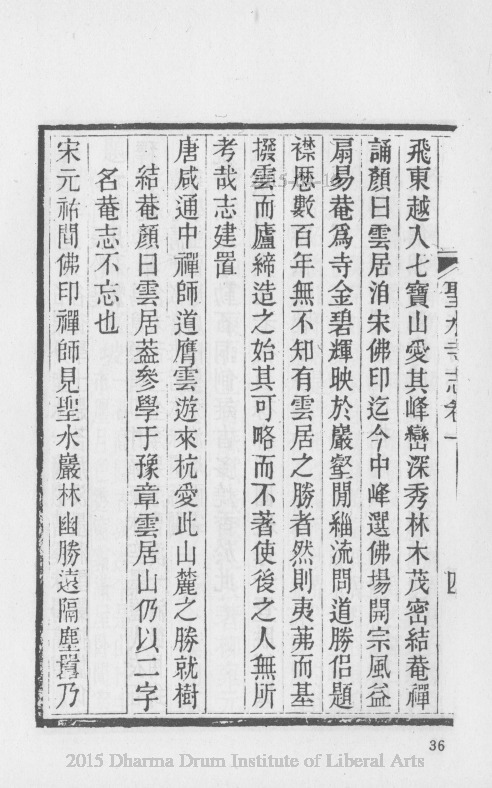 聖水寺志卷一
四
飛東越入七寶山愛其峰巒深秀林木茂密結菴禪
誦顏曰雲居洎宋佛印迄今中峰選佛場開宗風益
扇易菴爲寺金碧輝映於巖壑閒緇流問道勝侶題
襟歷數百年無不知有雲居之勝者然則夷茀而基
撥雲而廬締造之始其可略而不著使後之人無所
考哉志建置
唐咸通中禪師道膺雲遊來杭愛此山麓之勝就樹
結菴顏曰雲居葢參學于豫章雲居山仍以二字
名菴志不忘也
宋元祐間佛印禪師見聖水巖林幽勝遠隔塵囂乃
36
2015 Dharma Drum Institute of Liberal Arts